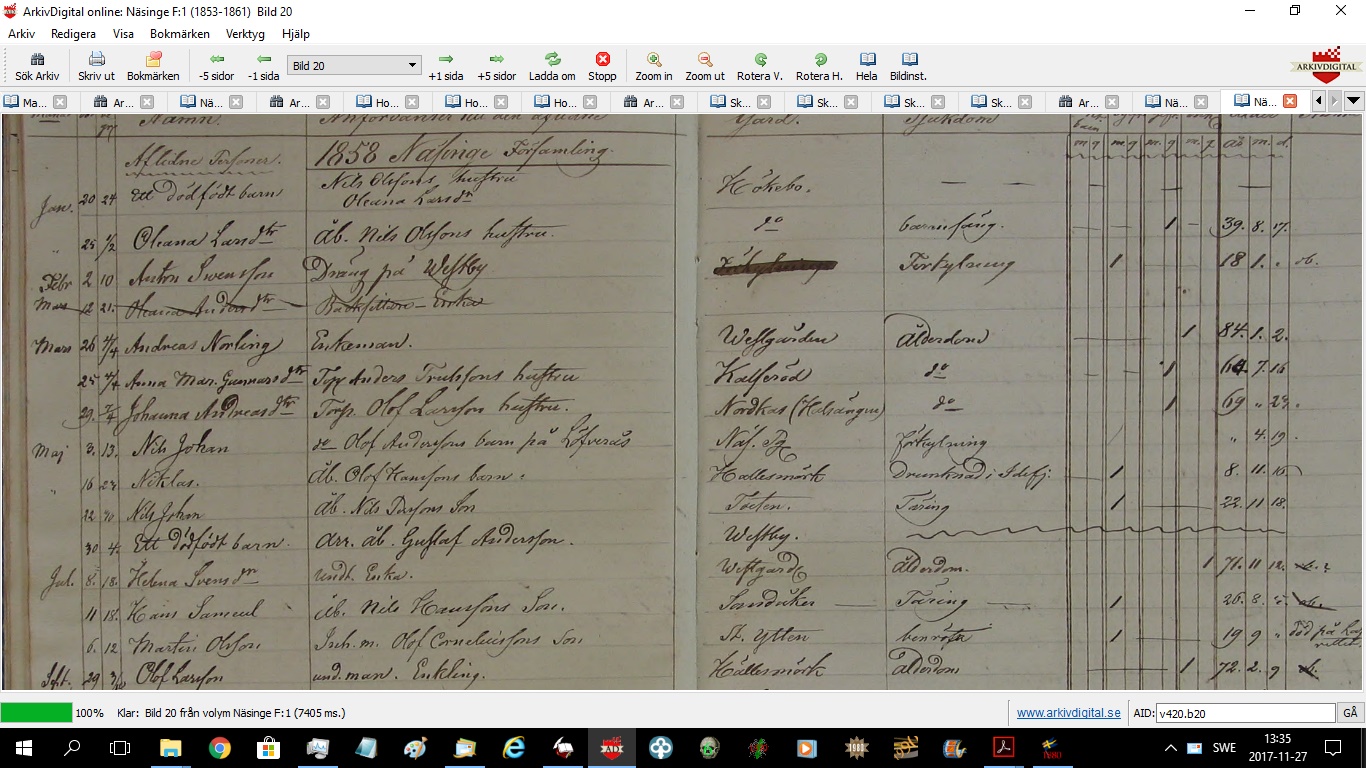 ArkivDigital online: Näsinge F:1 (1853-1861) Bild 20
Arkiv Redigera Visa Bokmärken Verktyg Hjälp
Bild 20
Sök Arkiv Skriv ut Bokmärken -5 sidor -1 sida +1 sida +5 sidor Ladda om Stopp Zoom in Zoom ut Rotera V. Rotera H. Hela Bildinst. ARKIVDIGITAL
Ma... Ar... Nä... Ar... Ho... Ho... Ho... Ar... Sk... Sk... Sk... Sk... Ar... Nä... Nä...
Namn. Gård. Sjukdom
Aflidne Personer. 1858 Näsinge Församling. m q m q m. q m. q år m. d.
Jan. 20 24 Ett dödfödt barn Nils Olssons hustru Oleana Larsdtr Hökebo.
" 25 1/2 Oleana Larsdtr Åb. Nils Olssons hustru do barnsäng. 1 39. 8. 17.
Febr 2 10 Anton Swensson Dräng på Westby Förkylning Förkylning 1 18 1. " ob.
Mars 12 21. Oleana Andersdtr Backsittare Enka
Mars 26 4/4 Andreas Norling Enkeman. Westgården Ålderdom 1 84. 1. 2.
25 4/4 Anna Mar. Gunnarsdtr Torp Anders Trulssons hustru Kalfseröd do 1 64. 7. 16
29. 7/4 Johanna Andreasdtr Torp. Olof Larsson hustru. Nordkas (Halsängen) do 1 69 " 23.
Maj 3. 13. Nils Johan do Olof Anderssons barn på Löfverås Näs. förkylning " 4. 19.
" 16 23 Niklas. Åb. Olof Hanssons barn Hällesmörk Drunknad i Idefj. 1 8. 11. 16
22 30 Nils John Åb. Nils Son Toeten. Tåring 1 22. 11 18.
30 4. Ett dödfödt barn. Arr. åb. Gustaf Andersson. Westby.
Jul. 8. 18. Helena Svensdtr undt. Enka. Westgård ålderdom. 1 71. 11 12.
11 18. Hans Samuel åb. Nils Hanssons Son. Sandåker Tåring 1 26. 8. ob.
6. 12 Martin Olsson Inh. m. Olof Corneliussons Son St. Ytten benröta 1 19 9 " död på
Sept. 29 Olof Larsson und. man. Enkling. Hällesmörk ålderdom 1 72. 2. 9 ob.
100% Klar: Bild 20 från volym Näsinge F:1 (7405 ms.) www.arkivdigital.se AID: v420.b20 GÅ
SWE 13:35
2017-11-27